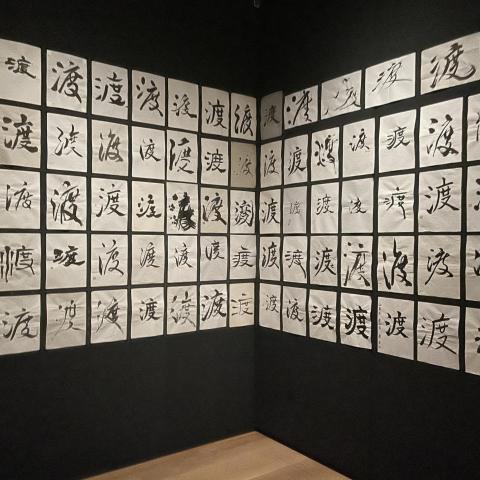 渡渡渡渡渡渡渡渡渡渡渡渡
渡渡渡渡渡渡渡渡渡渡渡渡
渡渡渡渡渡渡渡渡渡渡渡渡渡
渡渡渡渡渡渡渡渡渡渡渡渡渡
渡渡渡渡渡渡渡渡渡渡渡渡渡